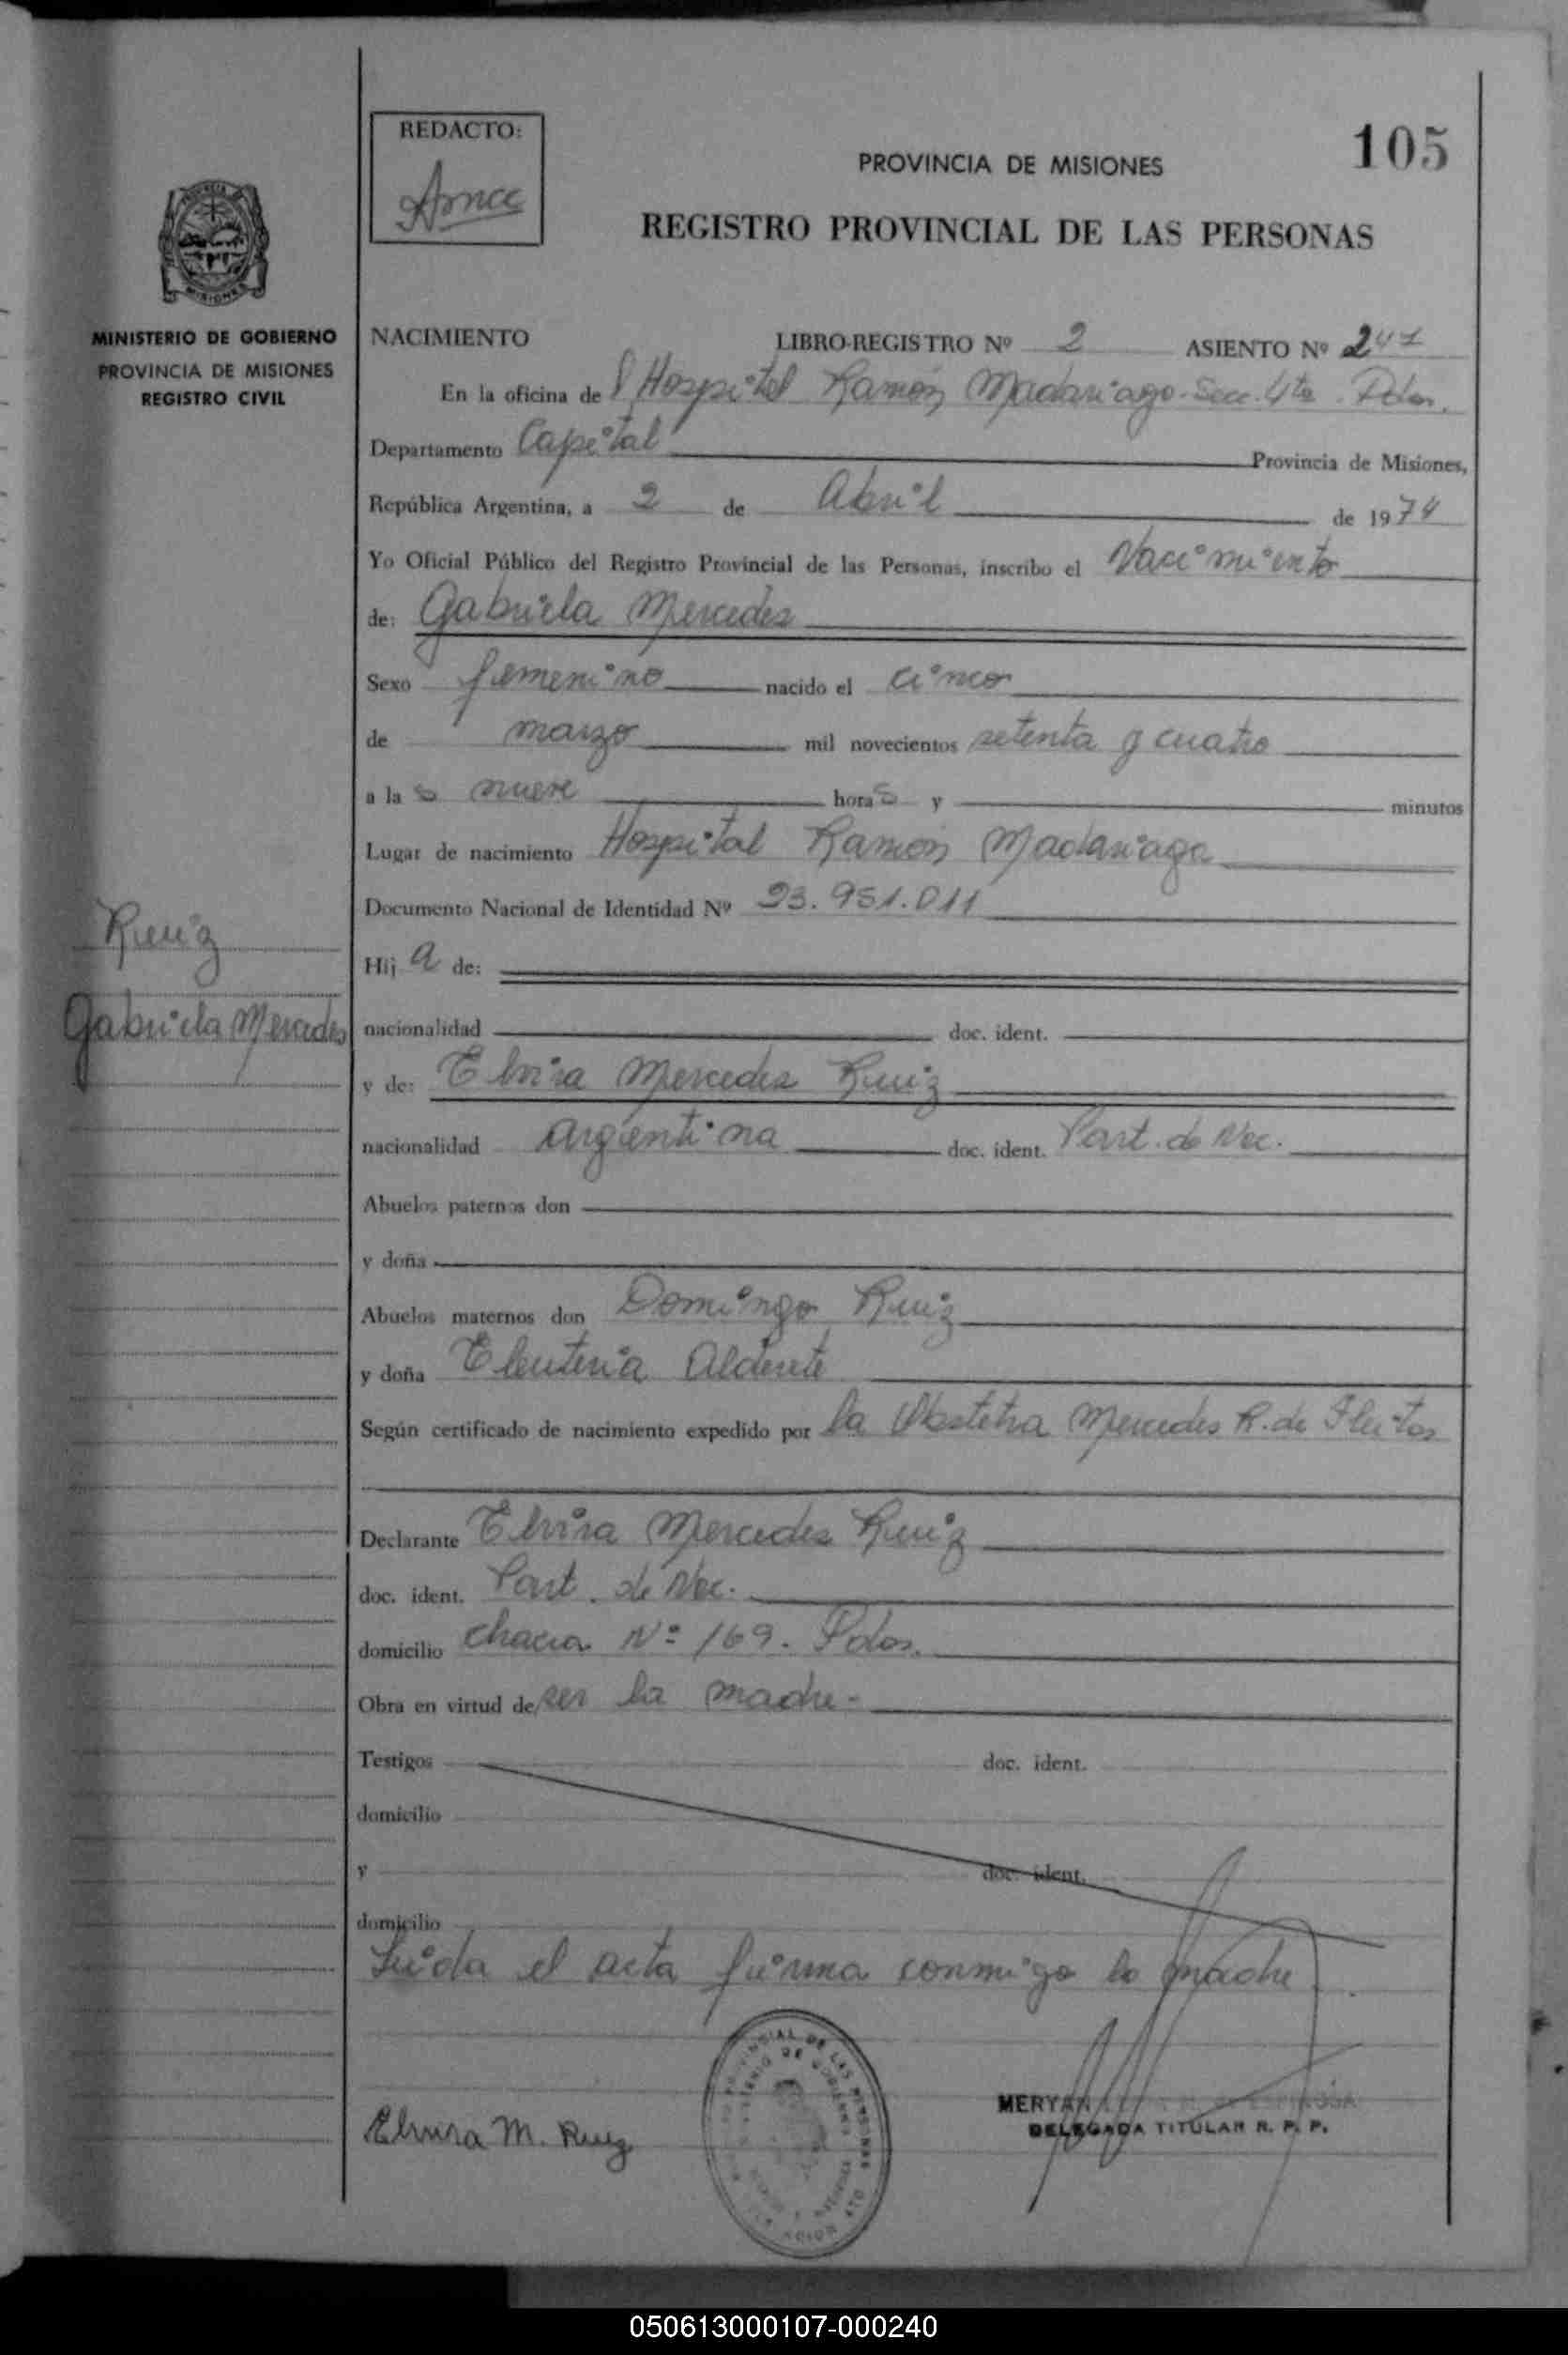 105
REDACTO:
PROVINCIA DE MISIONES
REGISTRO PROVINCIAL DE LAS PERSONAS
MISIONES
MINISTERIO DE GOBIERNO
PROVINCIA DE MISIONES
REGISTRO CIVIL
NACIMIENTO LIBRO-REGISTRO Nº 2 ASIENTO Nº 241
En la oficina del Hospital Ramón Madariaga - Secc. 4ta. Pdas.
Departamento Capital Provincia de Misiones,
República Argentina, a 2 de Abril de 1974
Yo Oficial Público del Registro Provincial de las Personas, inscribo el Nacimiento
de: Gabriela Mercedes
Sexo femenino nacido el cinco
de marzo mil novecientos setenta y cuatro
a las nueve horas y minutos
Lugar de nacimiento Hospital Ramón Madariaga
Documento Nacional de Identidad Nº 23.951.011
Ruiz
Gabriela Mercedes
Hija de:
nacionalidad doc. ident.
y de: Elvira Mercedes Ruiz
nacionalidad argentina doc. ident. Part. de Nac.
Abuelos paternos don
y doña
Abuelos maternos don Domingo Ruiz
y doña Eleuteria Alderete
Según certificado de nacimiento expedido por la Obstetra Mercedes R. de Fleitas
Declarante Elvira Mercedes Ruiz
doc. ident. Part. de Nac.
domicilio chacra Nº 169. Pdas.
Obra en virtud de ser la madre-
Testigos doc. ident.
domicilio
y doc. ident.
domicilio
Leida el acta firma conmigo la madre
Elvira M. Ruiz
DELEGADA TITULAR R. P. P.
050613000107-000240